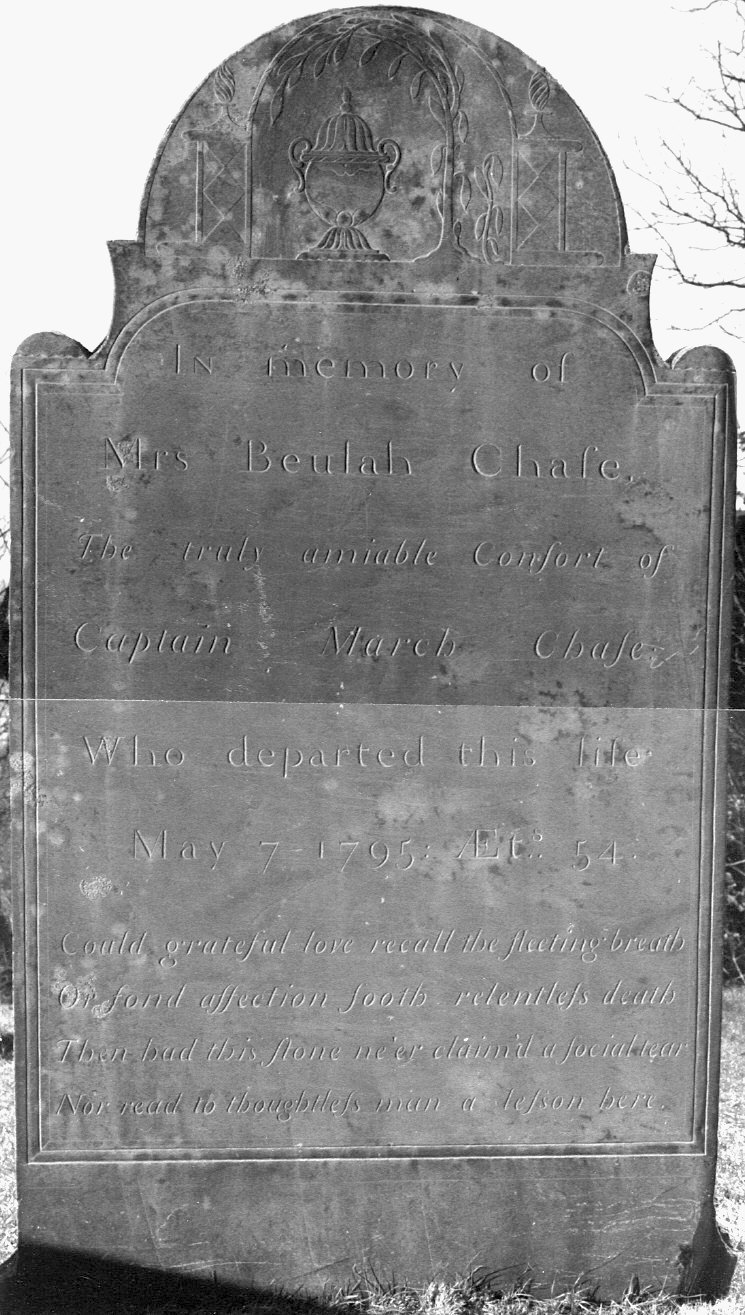 In memory of
Mrs Beulah Chaſe,
The truly amiable Conſort of
Captain March Chaſe
Who departed this life
May 7-1795: Æt.ˢ 54.
Could grateful love recall the fleeting breath
Or fond affection ſooth relentleſs death
Then had this ſtone ne'er claim'd a ſocial tear
Nor read to thoughtleſs man a leſson here.